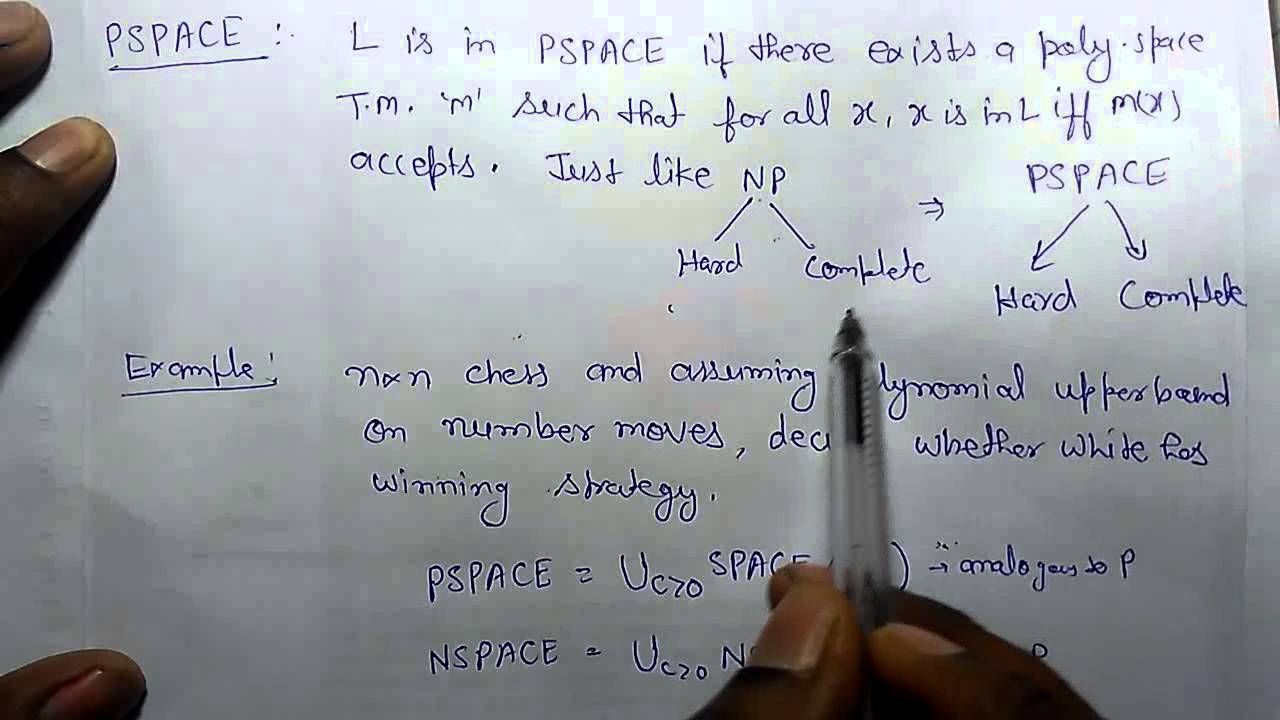 PSPACE :- L is in PSPACE if there exists a poly.space
T.M. 'M' such that for all x, x is in L iff M(x)
accepts. Just like NP ⇒ PSPACE
Hard Complete Hard Complete
Example: nxn chess and assuming lynomial upperbound
on number moves, dec whether white has
winning strategy.
PSPACE = U c>0 SPACE ) → analogous to P
NSPACE = U c>0 N P